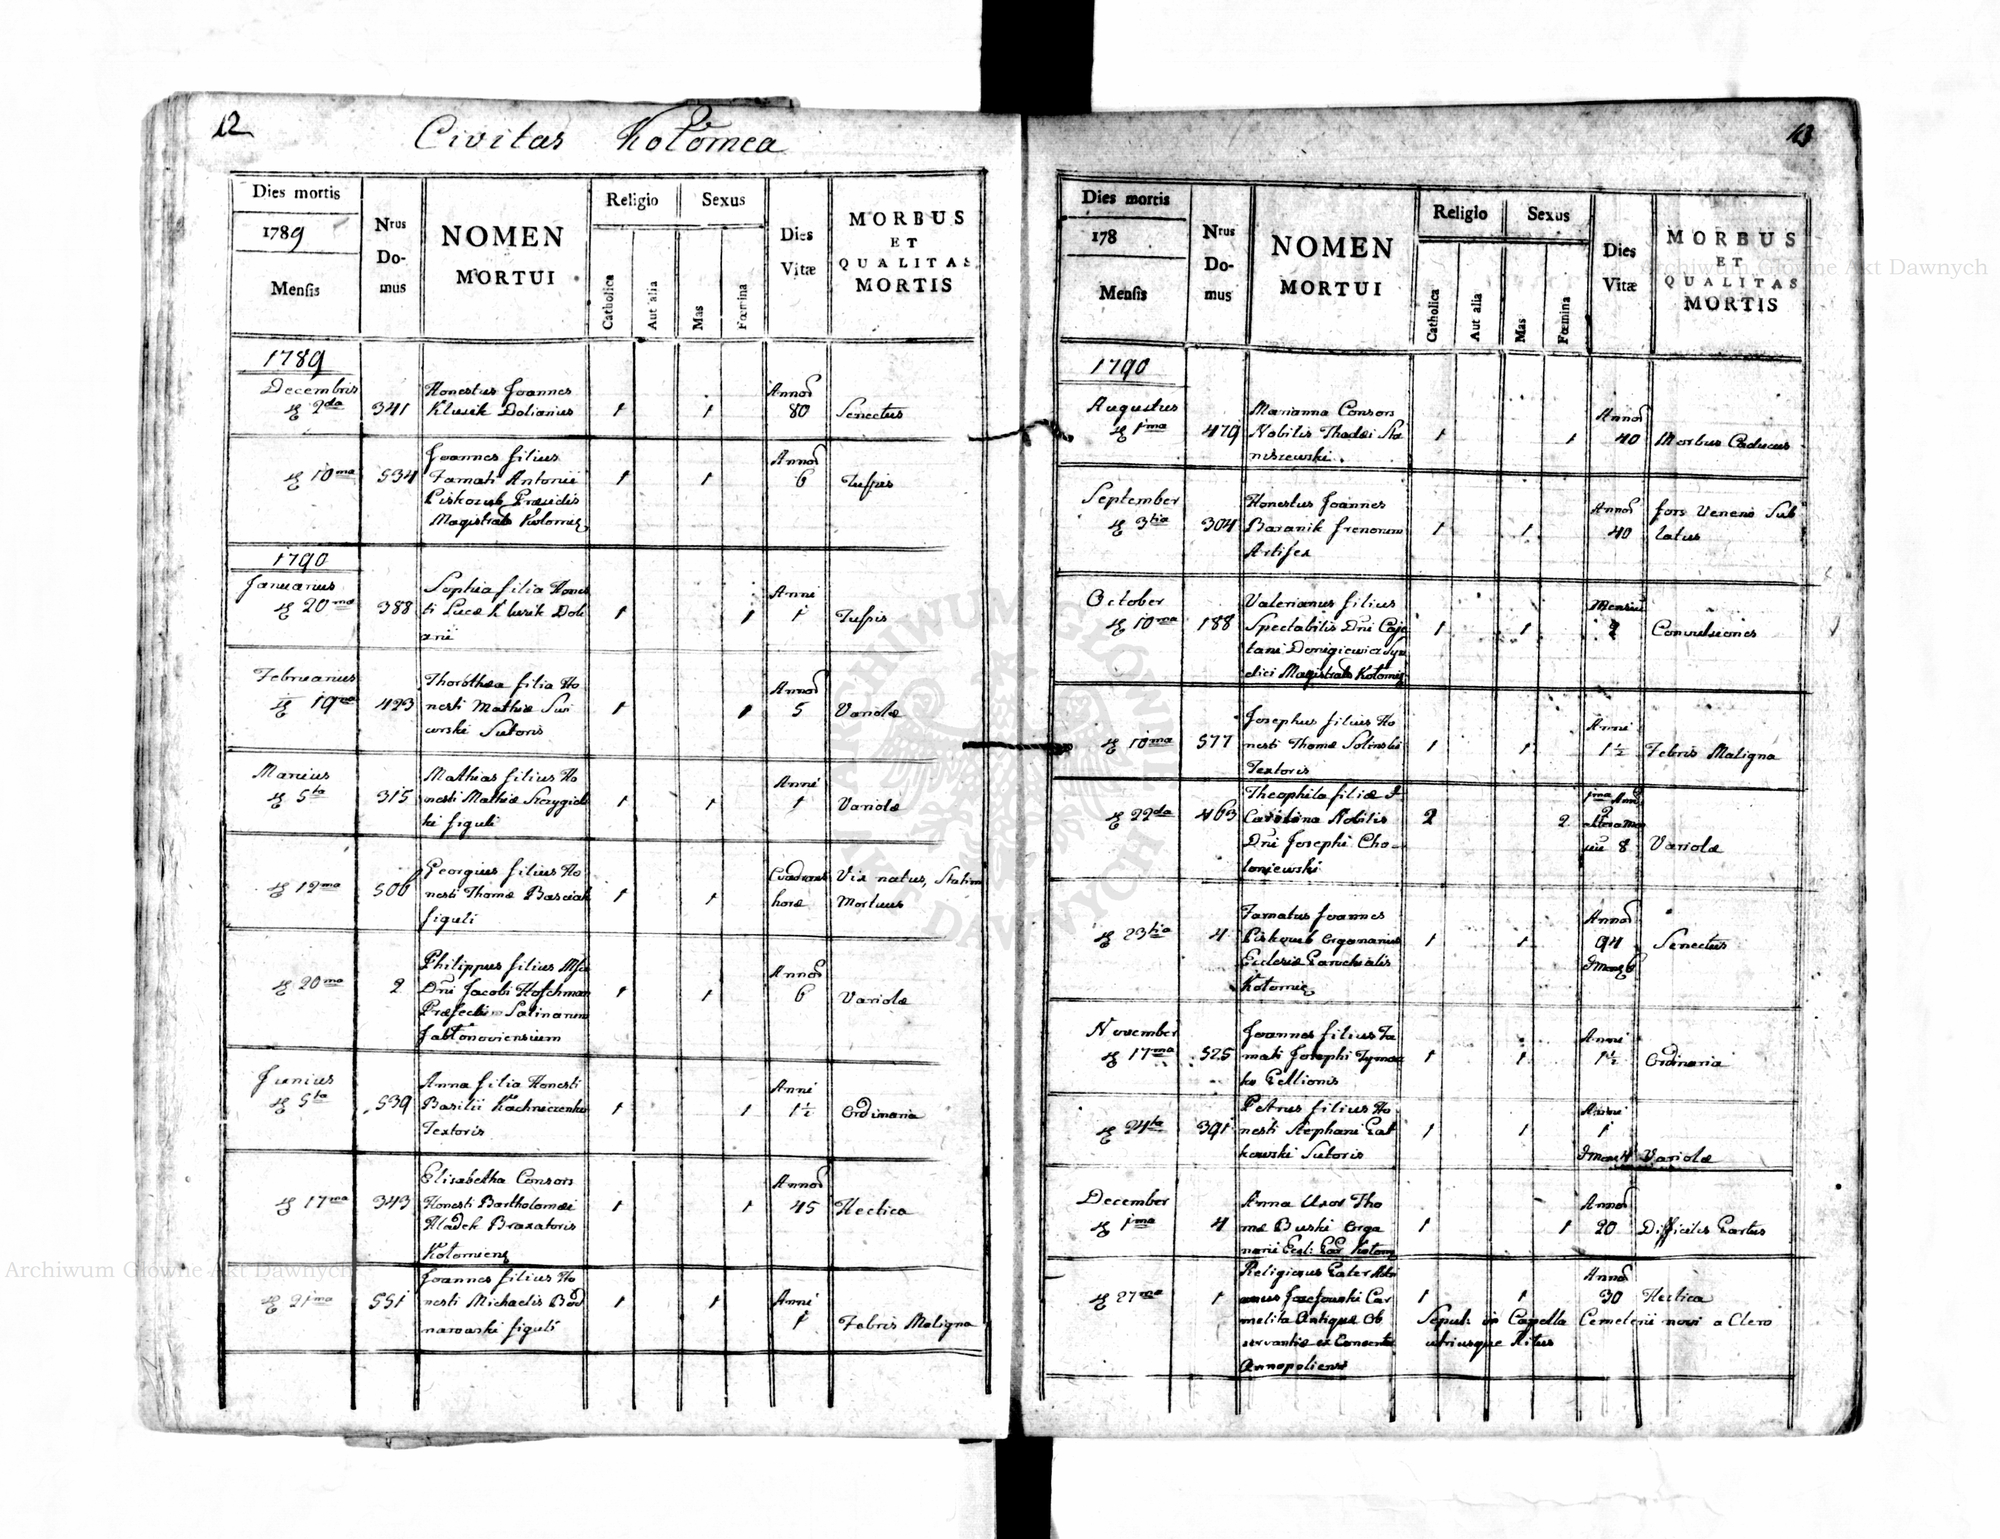 12
Civitas Kołomea
Dies mortis
1789
Mensis
Nrus
Do-
mus
NOMEN
MORTUI
Religio
Catholica
Aut alia
Sexus
Mas
Fœmina
Dies
Vitæ
MORBUS
ET
QUALITAS
MORTIS
1789
Decembris
2da
341
Honestus Joannes
Klusik Dolianus
1
1
Annor
80
Senectus
10ma
534
Joannes filius
Famati Antonii
Piskozub Præsidis
Magistrats Kołomię
1
1
Annor
6
Tussis
1790
Januarius
20ma
388
Sophia filia Hones
ti Lucæ Klusik Doli
ani
1
1
Anni
1
Tussis
Februarius
19na
423
Thorothea filia Ho
nesti Mathiæ
Sutoris
1
1
Annor
5
Variolæ
Marcius
5ta
315
Mathias filius Ho
nesti Mathiæ
ki figuli
1
1
Anni
1
Variolæ
12ma
506
Georgius filius Ho
nesti Thomæ Basciak
figuli
1
1
Quadrans
horæ
Vix natus, Statim
Mortuus
20ma
2
Philippus filius
Dni Jacobi Hoschman
Præfecti Salinarum
Jabłonoviensium
1
1
Annor
6
Variolæ
Junius
5ta
539
Anna filia Honesti
Basilii
Textoris
1
1
Anni
1½
Ordinaria
17ma
343
Elisabetha Consors
Honesti Bartholomæi
Hladek Braxatoris
Kołomiens
1
1
Annor
45
Hectica
21ma
551
Joannes filius Ho
nesti Michaelis Bod
narowski figuli
1
1
Anni
1
Febris Maligna
13
Dies mortis
178
Mensis
Nrus
Do-
mus
NOMEN
MORTUI
Religio
Catholica
Aut alia
Sexus
Mas
Fœmina
Dies
Vitæ
MORBUS
ET
QUALITAS
MORTIS
1790
Augustus
1ma
479
Marianna Consors
Nobilis Thadæi Sta
niszewski.
1
1
Annor
40
Morbus Caducus
September
3tia
304
Honestus Joannes
Baranik frenorum
Artifex
1
1
Annor
40
fors Veneno Sub
latus
October
10ma
188
Valerianus filius
Spectabilis Dni Caje
tani Donigiewicz Syn
dici Magistrats Kołomię
1
1
Mensiu
2
Convulsiones
10ma
577
Josephus filius Ho
nesti Thomæ Solinski
Textoris
1
1
Anni
1½
Febris Maligna
22da
463
Theophila filiæ &
Carolina Nobilis
Dni Josephi Cho-
łoniewski
2
2
1ma
2
8
Variolæ
23tia
4
Famatus Joannes
Piskozub Organarius
Ecclesiæ Parochialis
Kołomię
1
1
Annor
94
Senectus
November
17ma
525
Joannes filius Fa
mati Josephi Tymec
ko Pellionis
1
1
Anni
1½
Ordinaria
24ta
391
Petrus filius Ho
nesti Stephani Pat
kowski Sutoris
1
1
Anni
1
Variolæ
December
1ma
4
Anna Uxor Tho
mæ Buski Orga
narii Eccl: Par Kołom
1
1
Annor
20
Difficilis Partus
27ma
1
Religiosus Pater
Josefowski Car
melita Antiquæ Ob
servantiæ ex Conventu
Annopoliensi
1
1
Annor
30
Hectica
Sepul: in Capella Cemeterii novi a Clero
utriusque Ritus
Archiwum Główne Akt Dawnych
Archiwum Główne Akt Dawnych
ARCHIWUM GŁÓWNE AKT DAWNYCH